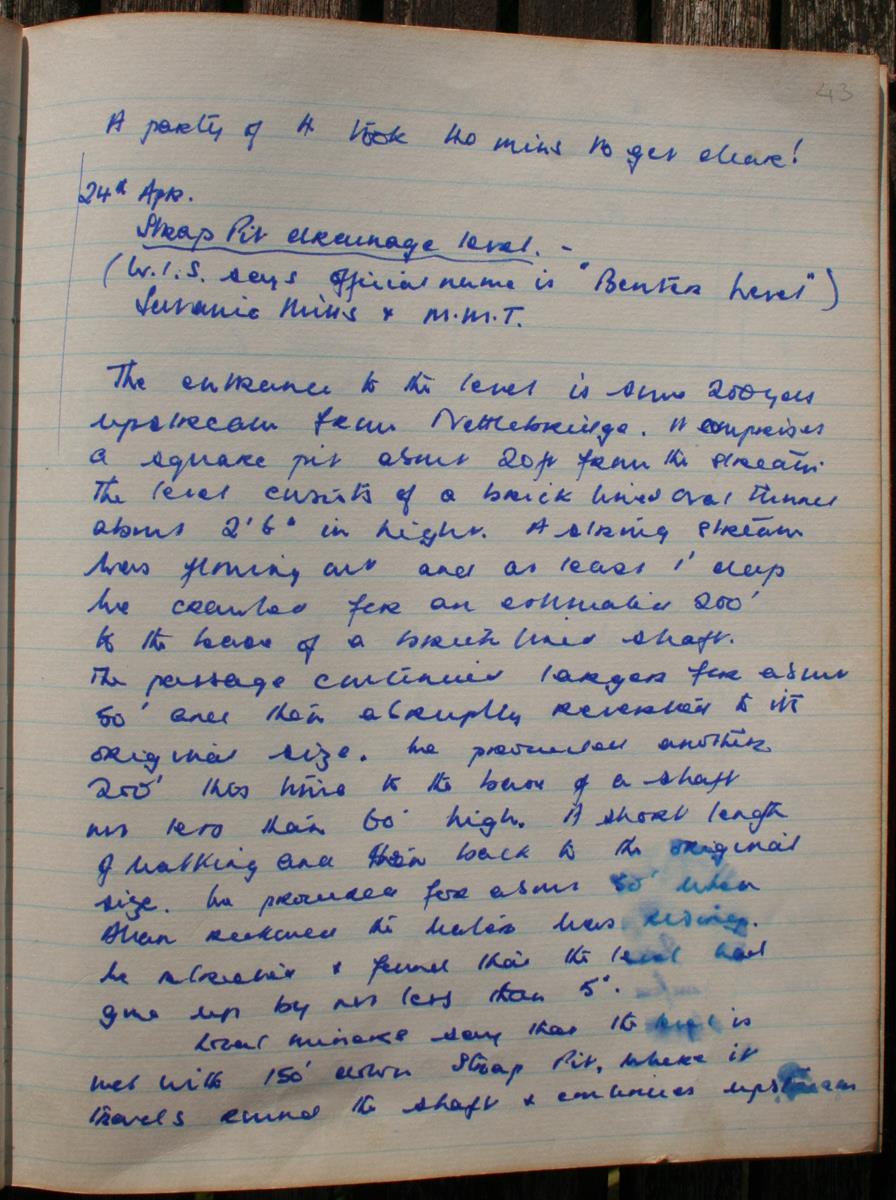 43
A party of 4 took 40 mins to get clear!
24th Apr.
Strap Pit drainage level. -
(W.I.S. says official name is "Benter Level")
Luvanic Mills & M.M.T.
The entrance to the level is some 200 yds
upstream from Nettlebridge. It comprises
a square pit about 20ft from the stream.
The level consists of a brick lined oval tunnel
about 2'6" in height. A strong stream
was flowing out and at least 1' deep
We crawled for an estimated 200'
to the base of a brick lined shaft.
The passage continued larger for about
50' and then abruptly reverted to its
original size. We proceeded another
200' this time to the base of a shaft
not less than 60' high. A short length
of walking and then back to the original
size. We proceeded for about 50' when
Alan reckoned the water was rising.
We retreated & found that the level had
gone up by not less than 5".
Local miners say that the level is
met with 150' down Strap Pit, where it
travels round the shaft & continues upstream